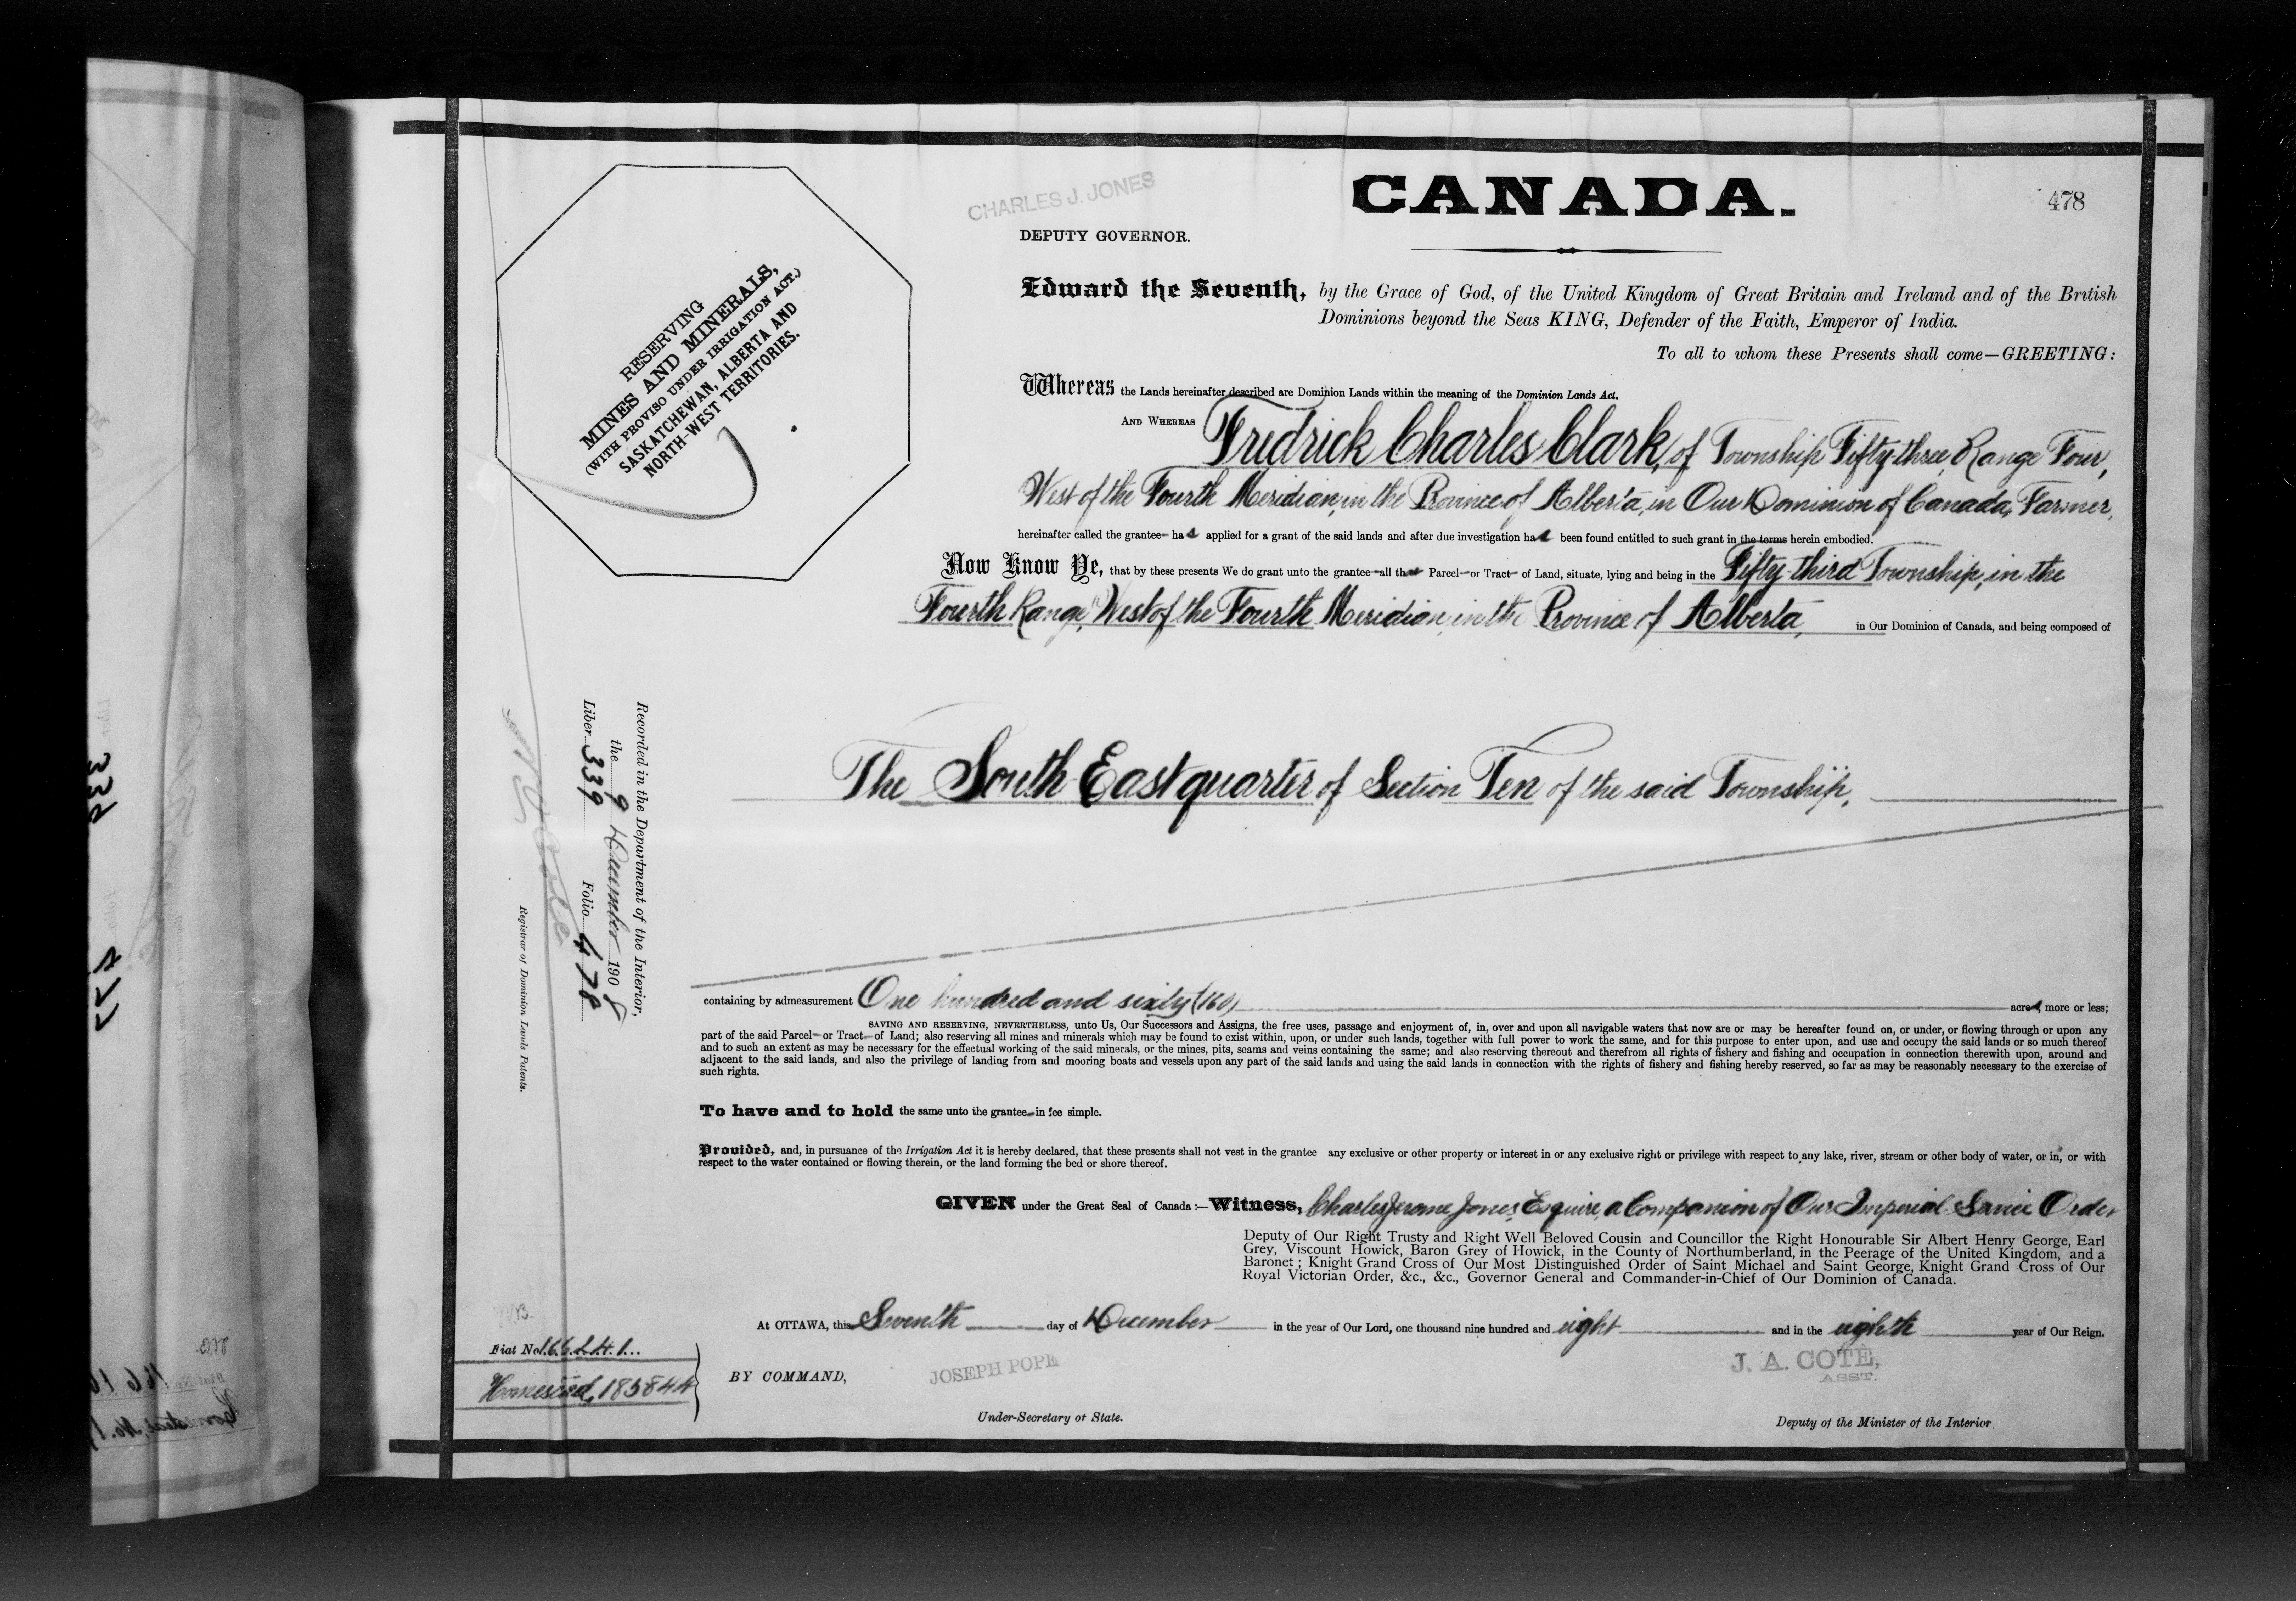 CANADA.
478
CHARLES J. JONES
DEPUTY GOVERNOR.
RESERVING
MINES AND MINERALS,
(WITH PROVISO UNDER IRRIGATION ACT.)
SASKATCHEWAN, ALBERTA AND
NORTH-WEST TERRITORIES.
Edward the Seventh, by the Grace of God, of the United Kingdom of Great Britain and Ireland and of the British
Dominions beyond the Seas KING, Defender of the Faith, Emperor of India.
To all to whom these Presents shall come—GREETING:
Whereas the Lands hereinafter described are Dominion Lands within the meaning of the Dominion Lands Act.
AND WHEREAS Fredrick Charles Clark, of Township Fifty-three, Range Four,
West of the Fourth Meridian, in the Province of Alberta, in Our Dominion of Canada, Farmer,
hereinafter called the grantee has applied for a grant of the said lands and after due investigation has been found entitled to such grant in the terms herein embodied.
Now Know Ye, that by these presents We do grant unto the grantee all that Parcel or Tract of Land, situate, lying and being in the Fifty-third Township, in the
Fourth Range, West of the Fourth Meridian, in the Province of Alberta, in Our Dominion of Canada, and being composed of
The South East quarter of Section Ten of the said Township,
containing by admeasurement One hundred and sixty (160) acres, more or less;
SAVING AND RESERVING, NEVERTHELESS, unto Us, Our Successors and Assigns, the free uses, passage and enjoyment of, in, over and upon all navigable waters that now are or may be hereafter found on, or under, or flowing through or upon any
part of the said Parcel or Tract of Land; also reserving all mines and minerals which may be found to exist within, upon, or under such lands, together with full power to work the same, and for this purpose to enter upon, and use and occupy the said lands or so much thereof
and to such an extent as may be necessary for the effectual working of the said minerals, or the mines, pits, seams and veins containing the same; and also reserving thereout and therefrom all rights of fishery and fishing and occupation in connection therewith upon, around and
adjacent to the said lands, and also the privilege of landing from and mooring boats and vessels upon any part of the said lands and using the said lands in connection with the rights of fishery and fishing hereby reserved, so far as may be reasonably necessary to the exercise of
such rights.
To have and to hold the same unto the grantee in fee simple.
Provided, and, in pursuance of the Irrigation Act it is hereby declared, that these presents shall not vest in the grantee any exclusive or other property or interest in or any exclusive right or privilege with respect to any lake, river, stream or other body of water, or in, or with
respect to the water contained or flowing therein, or the land forming the bed or shore thereof.
GIVEN under the Great Seal of Canada:—Witness, Charles Jerome Jones, Esquire, a Companion of Our Imperial Service Order
Deputy of Our Right Trusty and Right Well Beloved Cousin and Councillor the Right Honourable Sir Albert Henry George, Earl
Grey, Viscount Howick, Baron Grey of Howick, in the County of Northumberland, in the Peerage of the United Kingdom, and a
Baronet; Knight Grand Cross of Our Most Distinguished Order of Saint Michael and Saint George, Knight Grand Cross of Our
Royal Victorian Order, &c., &c., Governor General and Commander-in-Chief of Our Dominion of Canada.
At OTTAWA, this Seventh day of December in the year of Our Lord, one thousand nine hundred and eight and in the eighth year of Our Reign.
BY COMMAND,
JOSEPH POPE
Under-Secretary of State.
J. A. COTÉ,
ASST.
Deputy of the Minister of the Interior
Recorded in the Department of the Interior,
the 9 December 1908
Liber 339 Folio 478
Registrar of Dominion Lands Patents.
Fiat No. 166241
Homestead, 183844
339
477